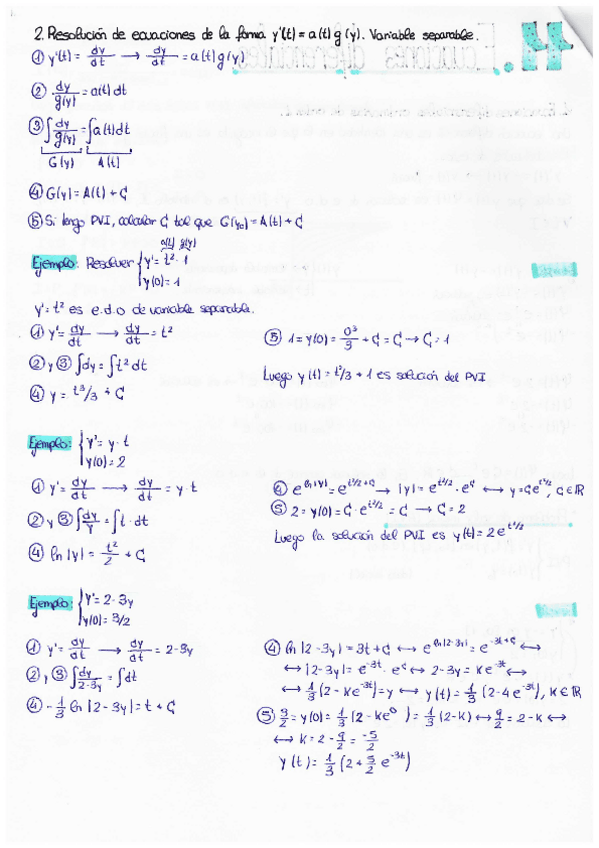 2. Resolución de ecuaciones de la forma y'(t) = a(t) g(y). Variable separable.
① y'(t) = dy/dt → dy/dt = a(t) g(y)
② dy/g(y) = a(t) dt
③ ∫ dy/g(y) = ∫ a(t) dt
G(y) A(t)
④ G(y) = A(t) + C
⑤ Si tengo PVI, calcular C tal que G(y₀) = A(t) + C
a(t) g(y)
Ejemplo: Resolver { y' = t² · 1
y(0) = 1
y' = t² es e.d.o de variable separable.
① y' = dy/dt → dy/dt = t²
② y ③ ∫dy = ∫t² dt
④ y = t³/3 + C
⑤ 1 = y(0) = 0³/3 + C = C → C = 1
Luego y(t) = t³/3 + 1 es solución del PVI
Ejemplo: { y' = y · t
y(0) = 2
① y' = dy/dt → dy/dt = y · t
② y ③ ∫ dy/y = ∫ t · dt
④ ln|y| = t²/2 + C
④ e^(ln|y|) = e^(t²/2 + C) → |y| = e^(t²/2) · e^C ↔ y = C e^(t²/2), C ∈ ℝ
⑤ 2 = y(0) = C · e^(t²/2) = C → C = 2
Luego la solución del PVI es y(t) = 2 e^(t²/2)
Ejemplo: { y' = 2 - 3y
y(0) = 3/2
① y' = dy/dt → dy/dt = 2 - 3y
② y ③ ∫ dy/2-3y = ∫dt
④ -1/3 ln|2 - 3y| = t + C
④ ln|2 - 3y| = 3t + C ↔ e^(ln|2-3y|) = e^(-3t + C) ↔
↔ |2 - 3y| = e^(-3t) · e^C ↔ 2 - 3y = K e^(-3t) ↔
↔ 1/3 (2 - K e^(-3t)) = y ↔ y(t) = 1/3 (2 - 4 e^(-3t)), K ∈ ℝ
⑤ 3/2 = y(0) = 1/3 (2 - K e⁰) = 1/3 (2 - K) ↔ 9/2 = 2 - K ↔
↔ K = 2 - 9/2 = -5/2
y(t) = 1/3 (2 + 5/2 e^(-3t))